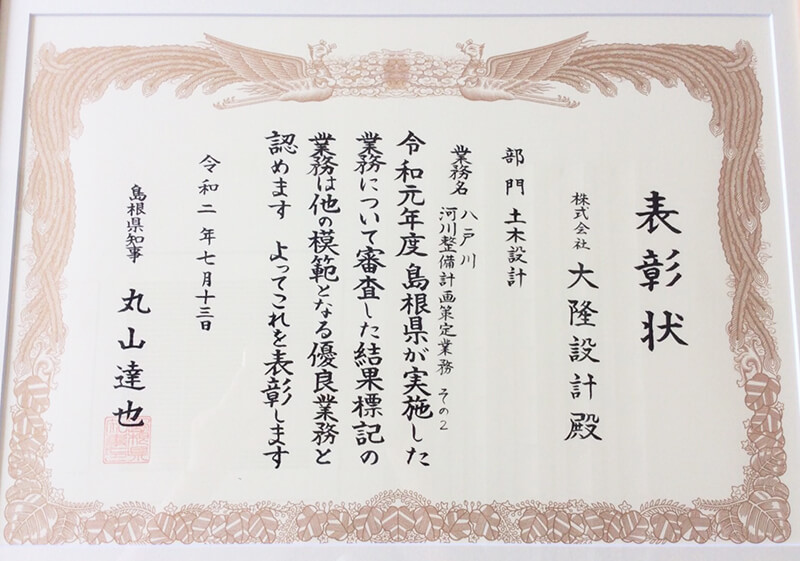 表彰状
株式会社 大隆設計殿
部門 土木設計
業務名 八戸川
河川整備計画策定業務 その2
令和元年度島根県が実施した
業務について審査した結果標記の
業務は他の模範となる優良業務と
認めます よってこれを表彰します
令和二年七月十三日
島根県知事 丸山達也